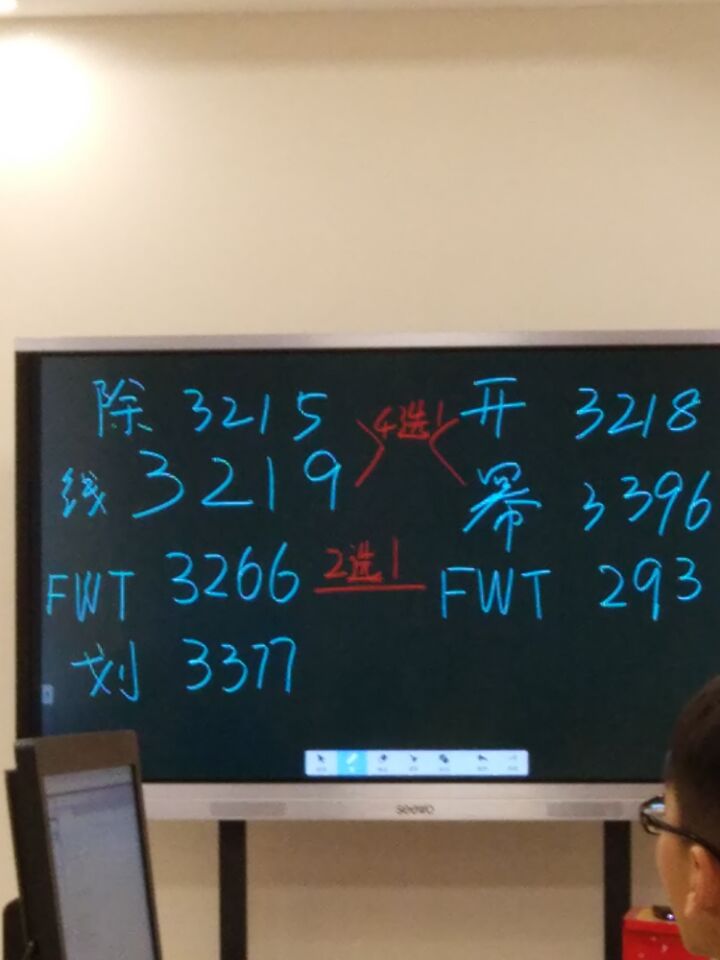 除 3215 4选1 开 3218
线 3219 幂 3396
FWT 3266 2选1 FWT 293
划 3377
seewo